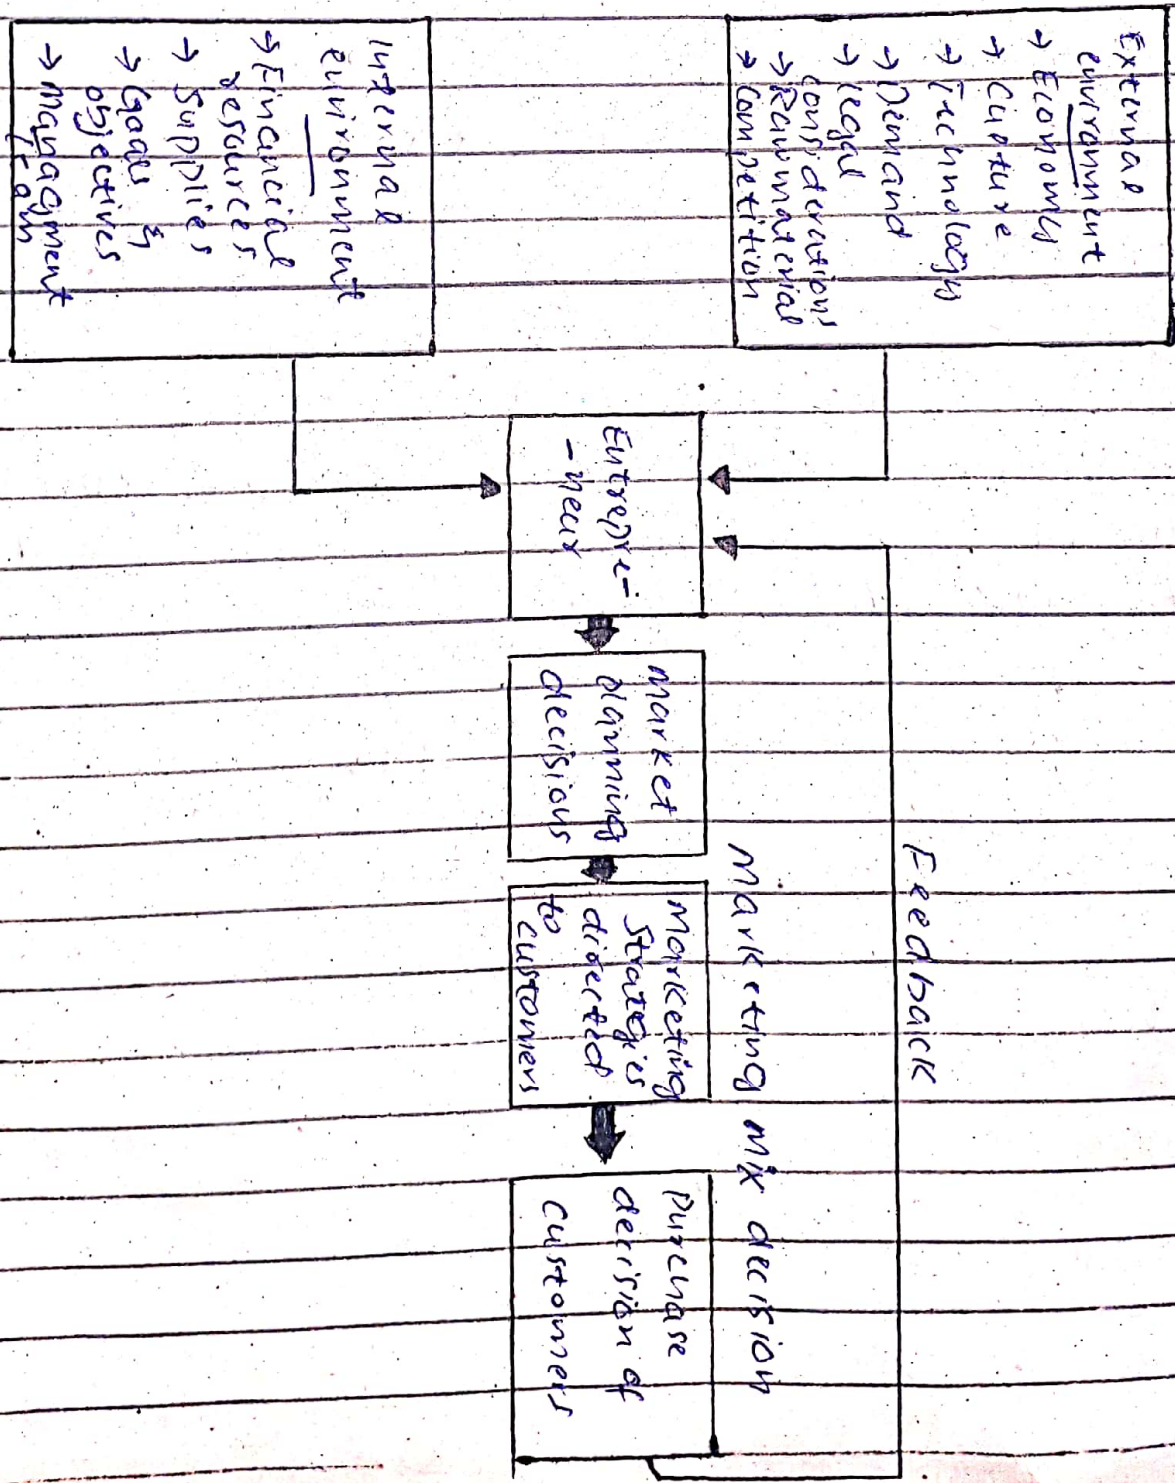 External
environment
→ Economy
→ Culture
→ Technology
→ Demand
→ legal
considerations
→ Raw material
→ Competition
Internal
environment
→ Financial
resources
→ Supplies
→ Goals &
objectives
→ Managment
team
Entrepre-
-neur
Market
planning
decisions
Marketing
Strategies
directed
to
customers
Purchase
decision of
customers
Marketing mix decision
Feedback